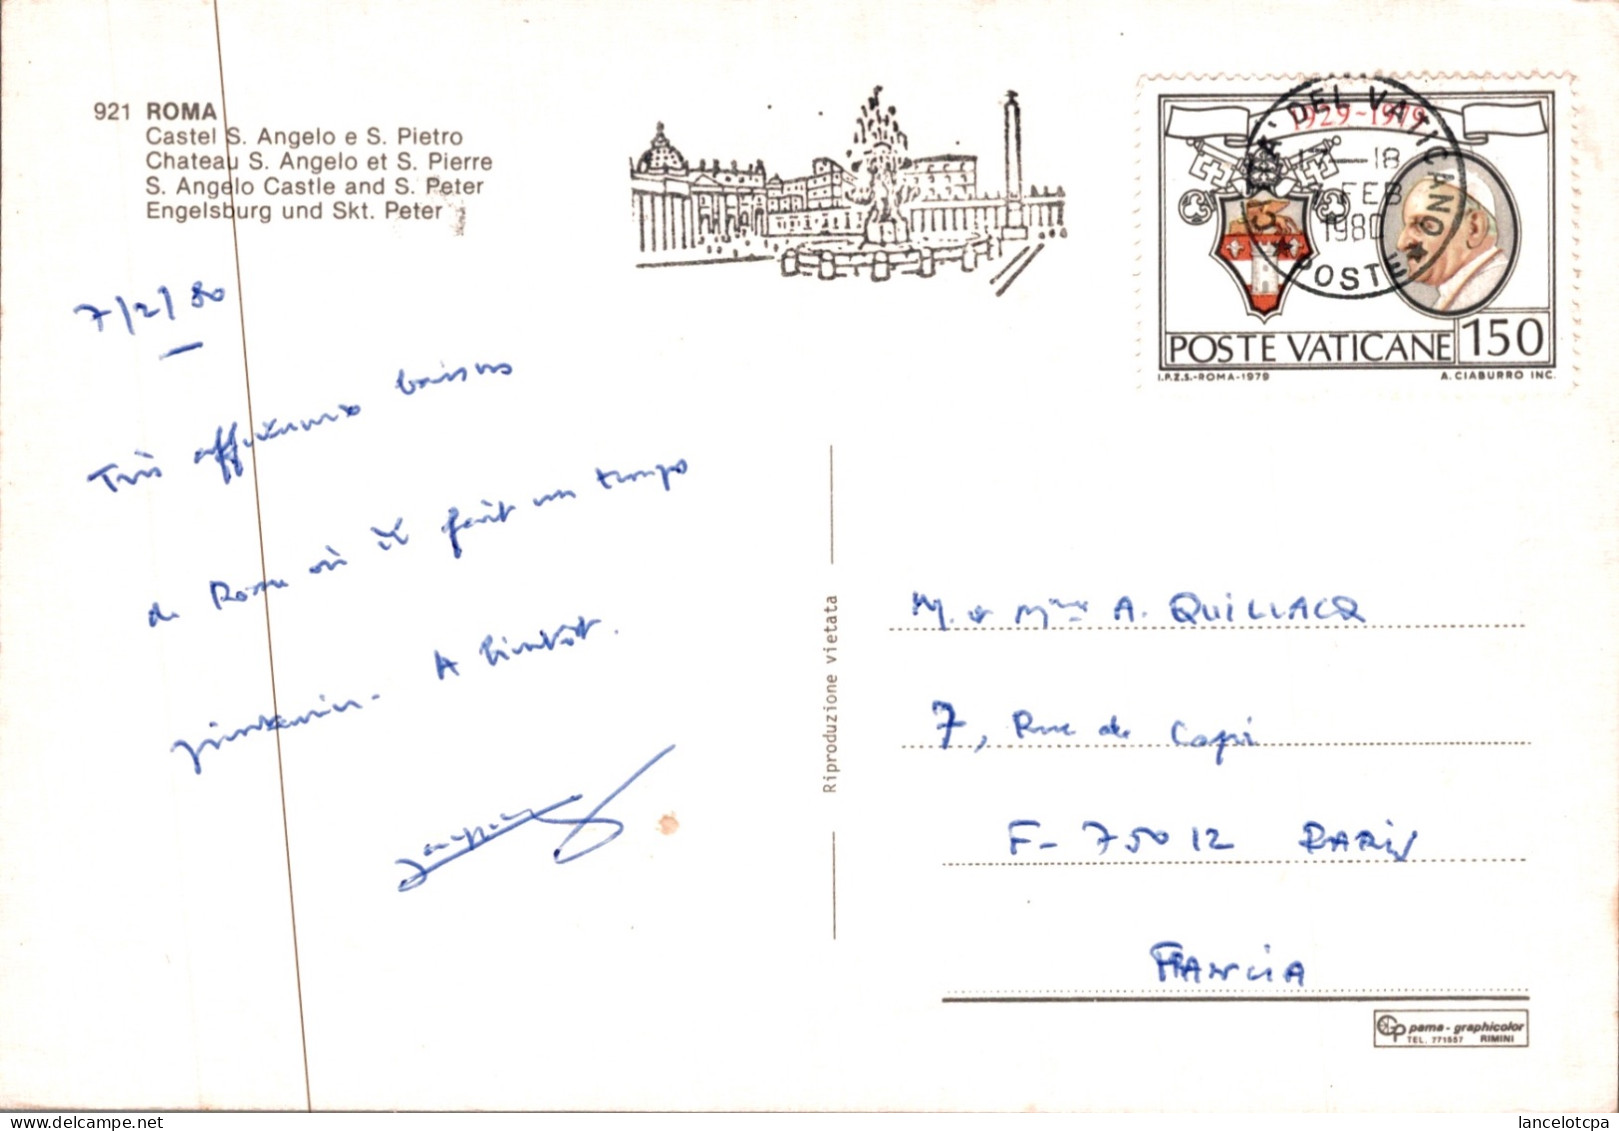 921 ROMA
Castel S. Angelo e S. Pietro
Chateau S. Angelo et S. Pierre
S. Angelo Castle and S. Peter
Engelsburg und Skt. Peter
CITTA' DEL VATICANO
17-18
7 FEB
1980
POSTE
1929-1979
POSTE VATICANE 150
I.P.Z.S.-ROMA-1979 A. CIABURRO INC.
7/2/80
Très affectueux baisers
de Rome où il fait un temps
printanier. A bientôt.
Riproduzione vietata
M. et Mme A. QUILLACQ
7, Rue de Capri
F-75012 PARIS
FRANCIA
pama-graphicolor
TEL. 771557 RIMINI
lancelotcpa